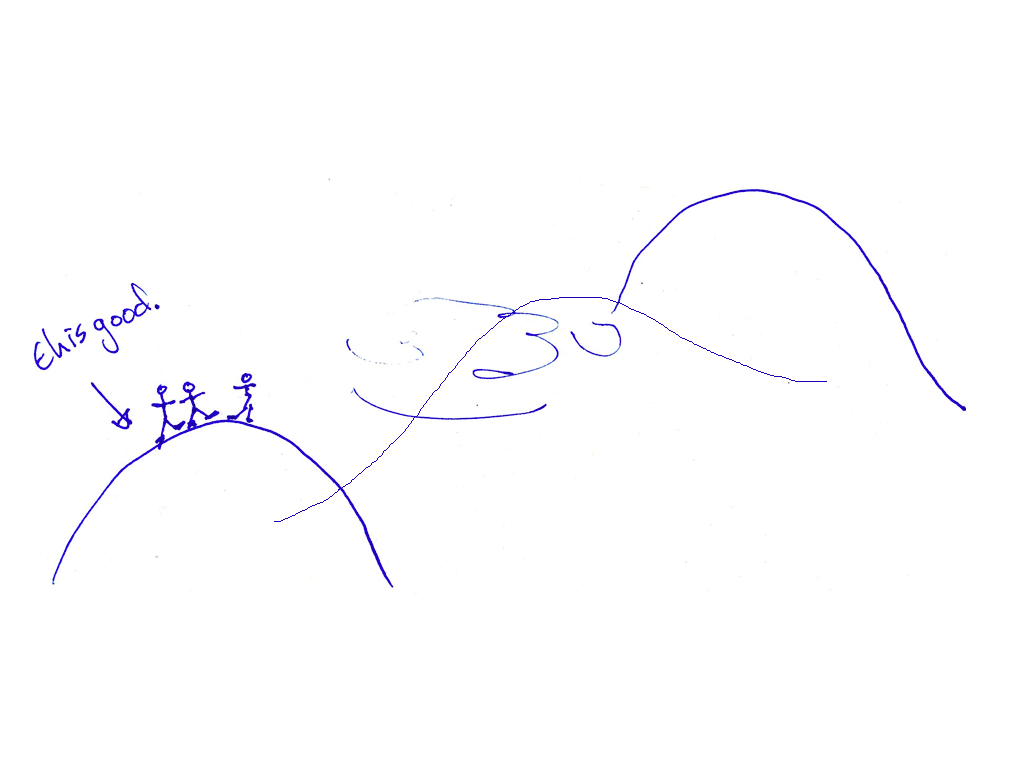 this good.